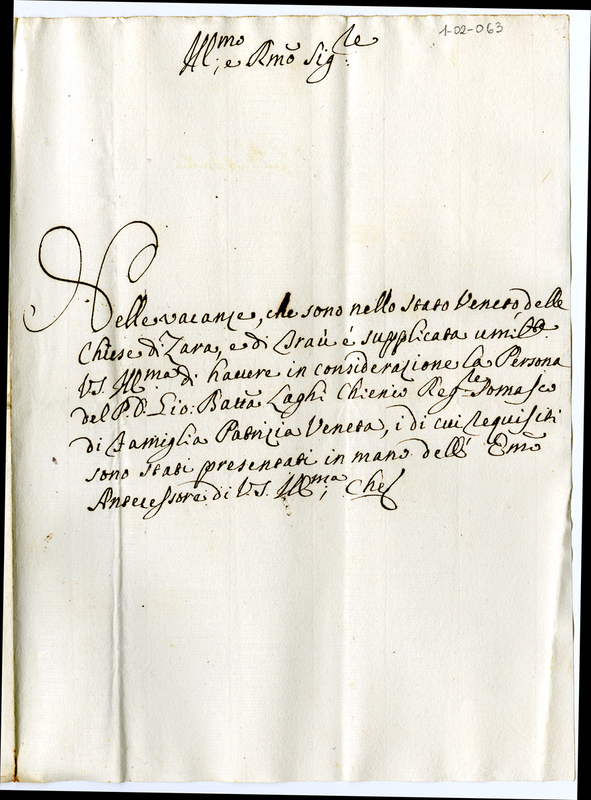 1-02-063
Ill:mo e Rmõ Sig:re
Nelle vacanze, che sono nello Stato Veneto, delle
Chiese di Zara, e di Traù é supplicata umil:te
V.S. Ill:ma di havere in considerazione la Persona
del P.D. Gio: Batta Laghi Chierico Reg:re Somasco
di Famiglia Patrizia Veneta, i di cui requisiti
sono stati presentati in mano dell' Emõ
Antecessore di V.S. Ill:ma, Che